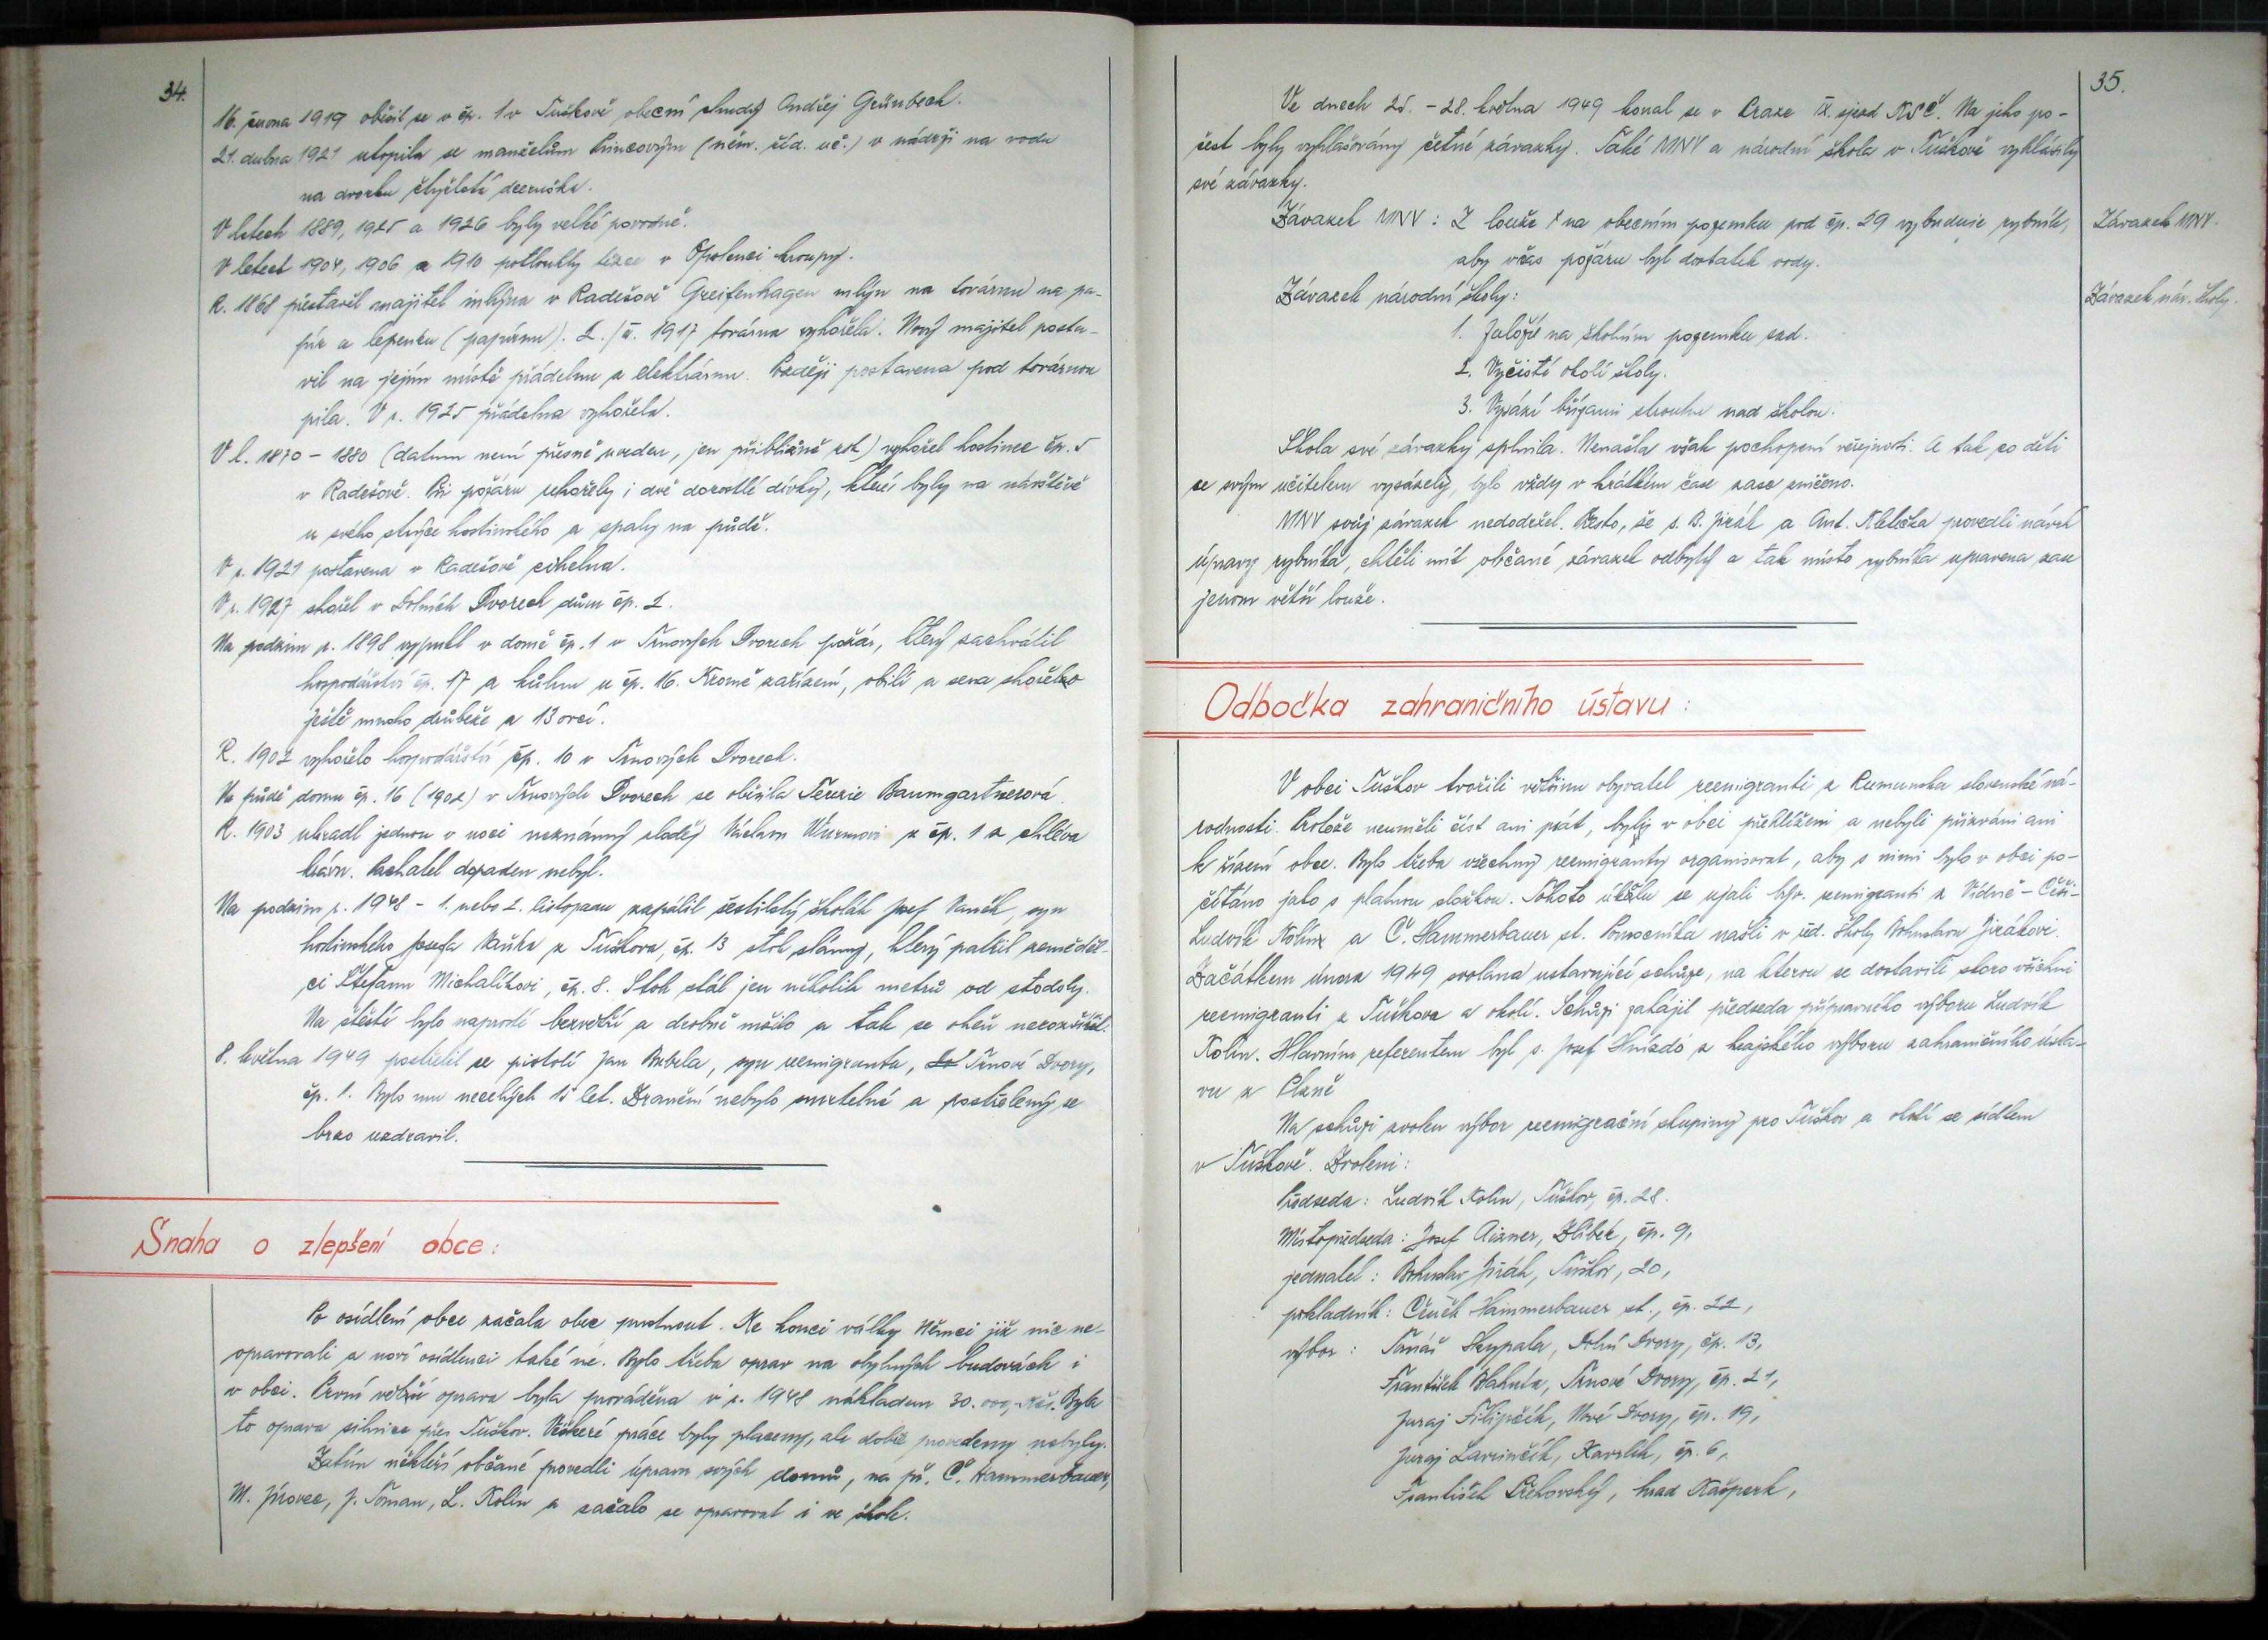 34.
16. února 1919 oběsil se v čp. 1 v Tuškově obecní chudý Ondřej Grünbeck.
21. dubna 1921 utopila se manželům Princovým (něm. říd. uč.) v nádrži na vodu
na dvorku čtyřletá dceruška.
V letech 1889, 1925 a 1926 byly velké povodně.
V letech 1904, 1906 a 1910 potloukly v Opolenci kroupy.
R. 1868 přestavěl majitel mlýna v Radešově Greifenhagen mlýn na továrnu na pa-
pír a lepenku (papírnu). 2./V. 1917 továrna vyhořela. Nový majitel posta-
vil na jejím místě přádelnu a elektrárnu. Později postavena pod továrnou
pila. V r. 1925 přádelna vyhořela.
V l. 1870 - 1880 (datum není přesně uveden, jen přibližně) vyhořel hostinec čp. 5
v Radešově. Při požáru uhořely i dvě dorostlé dívky, které byly na návštěvě
u svého strýce hostinského a spaly na půdě.
V r. 1921 postavena v Radešově cihelna.
V r. 1927 shořel v Dolních Dvorech dům čp. 2.
Na podzim r. 1898 vypukl v domě čp. 1 v Trnových Dvorech požár, který zachvátil
hospodářství čp. 17 a kůlnu u čp. 16. Kromě zařízení, obilí a sena shořelo
ještě mnoho drůbeže a 13 ovcí.
R. 1902 vyhořelo hospodářství čp. 10 v Trnových Dvorech.
Na půdě domu čp. 16 (1902) v Trnových Dvorech se oběsila Terezie Baumgartnerová.
R. 1903 ukradl jednou v noci neznámý zloděj Václavu Wurmovi z čp. 1 z chléva
krávu. Pachatel dopaden nebyl.
Na podzim r. 1948 - 1. nebo 2. listopadu zapálil šestiletý školák Josef Vaněk, syn
hostinského Josefa Vaňka z Tuškova, čp. 13 stoh slámy, který patřil zeměděl-
ci Štefanu Michalíkovi, čp. 8. Stoh stál jen několik metrů od stodoly.
Na štěstí bylo naprosté bezvětří a drobně mžilo a tak se oheň nerozšířil.
8. května 1949 postřelil se pistolí Jan Bubela, syn reemigranta, Trnové Dvory,
čp. 1. Bylo mu necelých 15 let. Zranění nebylo smrtelné a postřelený se
brzo uzdravil.
Snaha o zlepšení obce:
Po osídlení obce začala obec pustnout. Ke konci války Němci již nic ne-
opravovali a noví osídlenci také ne. Bylo třeba oprav na obytných budovách i
v obci. První větší oprava byla prováděna v r. 1948 nákladem 30.000,-Kčs. Byla
to oprava silnice přes Tuškov. Veškeré práce byly placeny, ale dobře provedeny nebyly.
Zatím někteří občané provedli úpravu svých domů, na př. Č. Hammerbauer,
M. Jírovec, J. Toman, L. Kolín a začalo se opravovat i ve škole.
35.
Ve dnech 25. - 28. května 1949 konal se v Praze IX. sjezd KSČ. Na jeho po-
čest byly vyhlašovány četné závazky. Také MNV a národní škola v Tuškově vyhlásily
své závazky.
Závazek MNV : Z louže na obecním pozemku pod čp. 29 vybuduje rybník,
Závazek MNV.
aby včas požáru byl dostatek vody.
Závazek národní školy:
Závazek nár. školy.
1. Založí na školním pozemku sad.
2. Vyčistí okolí školy.
3. Vysází břízami strouhu nad školou.
Škola své závazky splnila. Nenašla však pochopení veřejnosti. A tak co děti
se svým učitelem vysázely, bylo vždy v krátkém čase zase zničeno.
MNV svůj závazek nedodržel. Přesto, že s. B. Jirák a Ant. Kletečka provedli návrh
úpravy rybníka, chtěli mít občané závazek odbytý a tak místo rybníka upravena zase
jenom větší louže.
Odbočka zahraničního ústavu :
V obci Tuškov tvořili většinu obyvatel reemigranti z Rumunska slovenské ná-
rodnosti. Protože neuměli číst ani psát, byly v obci přehlíženi a nebyli přizváni ani
k řízení obce. Bylo třeba všechny reemigranty organisovat, aby s nimi bylo v obci po-
čítáno jako s platnou složkou. Tohoto úkolu se ujali reemigranti z Vídně - Češi -
Ludvík Kolín a Č. Hammerbauer st. Pomocníka našli v řed. školy Bohuslavu Jirákovi.
Začátkem února 1949 svolána ustavující schůze, na kterou se dostavili skoro všichni
reemigranti z Tuškova a okolí. Schůzi zahájil předseda přípravného výboru Ludvík
Kolín. Hlavním referentem byl s. Josef Hnízdo z krajského výboru zahraničního ústa-
vu z Plzně
Na schůzi zvolen výbor reemigrační skupiny pro Tuškov a okolí se sídlem
v Tuškově. Zvoleni:
Předseda : Ludvík Kolín, Tuškov, čp. 28.
Místopředseda : Josef Aizner, Žlíbek, čp. 9,
jednatel : Bohuslav Jirák, Tuškov, 20,
pokladník : Čeněk Hammerbauer st., čp. 22,
výbor : Tomáš Skypala, Dolní Dvory, čp. 13,
František Blahuta, Trnové Dvory, čp. 21,
Juraj Filipčík, Nové Dvory, čp. 19,
Juraj Lavrinčík, Kavrlík, čp. 6,
František Třehovský, hrad Kašperk,